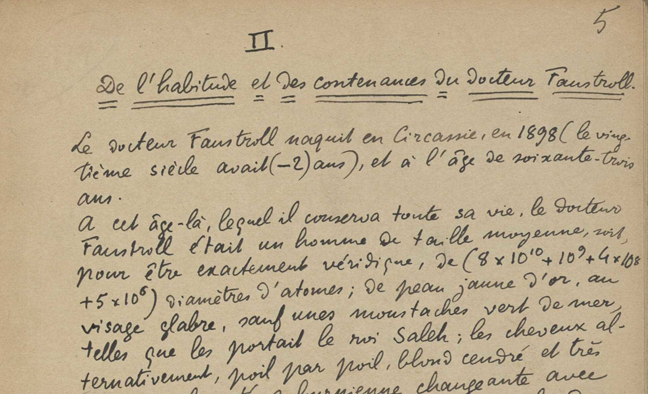 5
II.
De l'habitude et des contenances du docteur Faustroll.
Le docteur Faustroll naquit en Circassie, en 1898 (le ving-
tième siècle avait (−2) ans), et à l'âge de soixante-trois
ans.
A cet âge-là, lequel il conserva toute sa vie, le docteur
Faustroll était un homme de taille moyenne, soit,
pour être exactement véridique, de (8 × 10¹⁰ + 10⁹ + 4 × 10⁸
+ 5 × 10⁶) diamètres d'atomes; de peau jaune d'or, au
visage glabre, sauf unes moustaches vert de mer,
telles que les portait le roi Saleh; les cheveux al-
ternativement, poil par poil, blond cendré et très
changeante avec